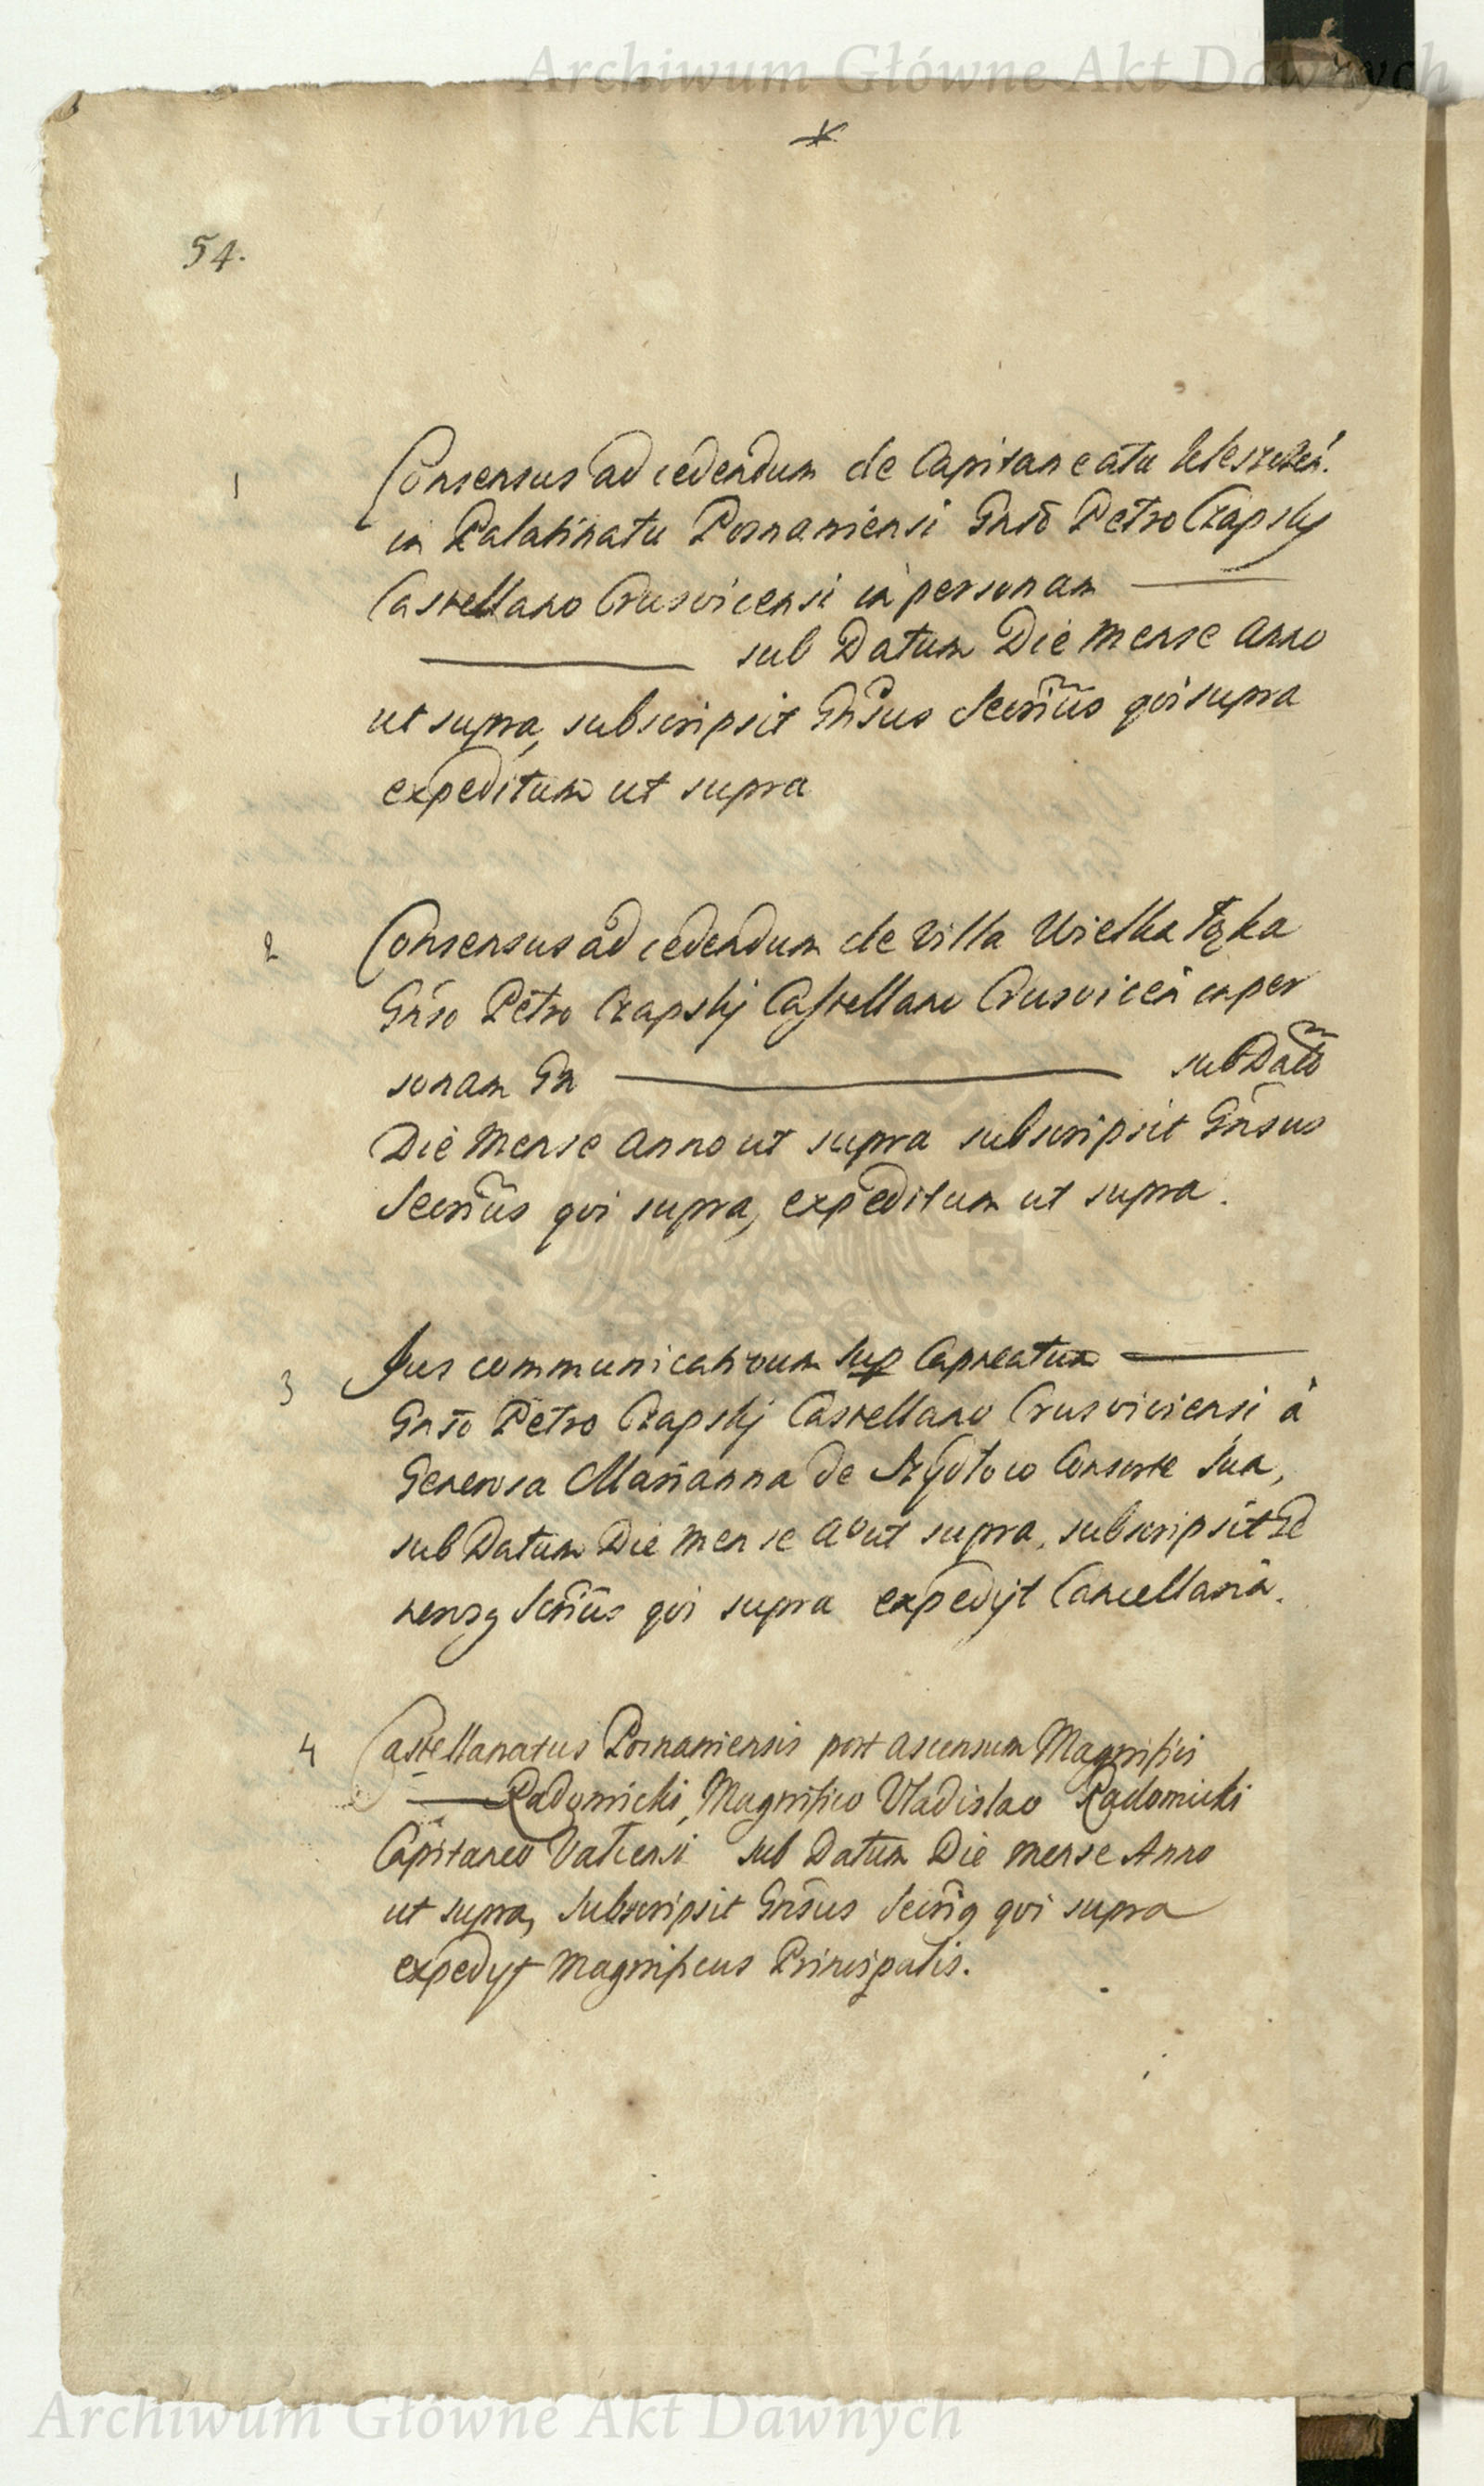 Archiwum Główne Akt Dawnych
54.
1 Consensus ad cedendum de Capitaneatu
in Palatinatu Posnaniensi Gnso Petro Czapsky
Castellano Crusvicensi in personam ———
——— sub Datum Die Mense Anno
ut supra, subscripsit Gnsus Secrius qvi supra
expeditum ut supra
2 Consensus ad cedendum de Villa Wielka Łąka
Gnso Petro Czapskij Castellano Crusvicen in per
sonam Gn ——— sub Dato
Die Mense Anno ut supra subscripsit Gnsus
Secrius qvi supra, expeditum ut supra.
3 Jus communicativum sup Capneatum ———
Gnso Petro Czapskij Castellano Crusviciensi à
Generosa Marianna de Consorte Sua,
sub Datum Die Mense Ao ut supra, subscripsit Ge
neros9 Scrius qvi supra expedijt Cancellaria.
4 Castellanatus Posnaniensis post ascensum Magnifici
——— Radomicki, Magnifico Vladislao Radomicki
Capitaneo sub Datum Die Mense Anno
ut supra, Subscripsit Gnsus Secri9 qvi supra
expedyt Magnificus Principalis.
Archiwum Główne Akt Dawnych